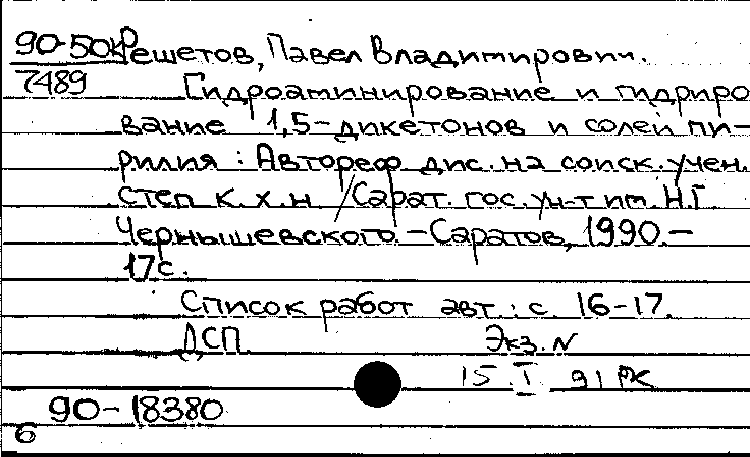 90-50кр Решетов, Павел Владимирович.
7489
Гидроаминирование и гидриро
вание 1,5-дикетонов и солей пи-
рилия : Автореф. дис. на соиск. учен.
степ к. х. н /Сарат. гос. ун-т им. Н.Г.
Чернышевского. - Саратов, 1990. -
17с.
Список работ авт.: с. 16-17.
ДСП Экз. N
15 I 91 РК
90-18380
6